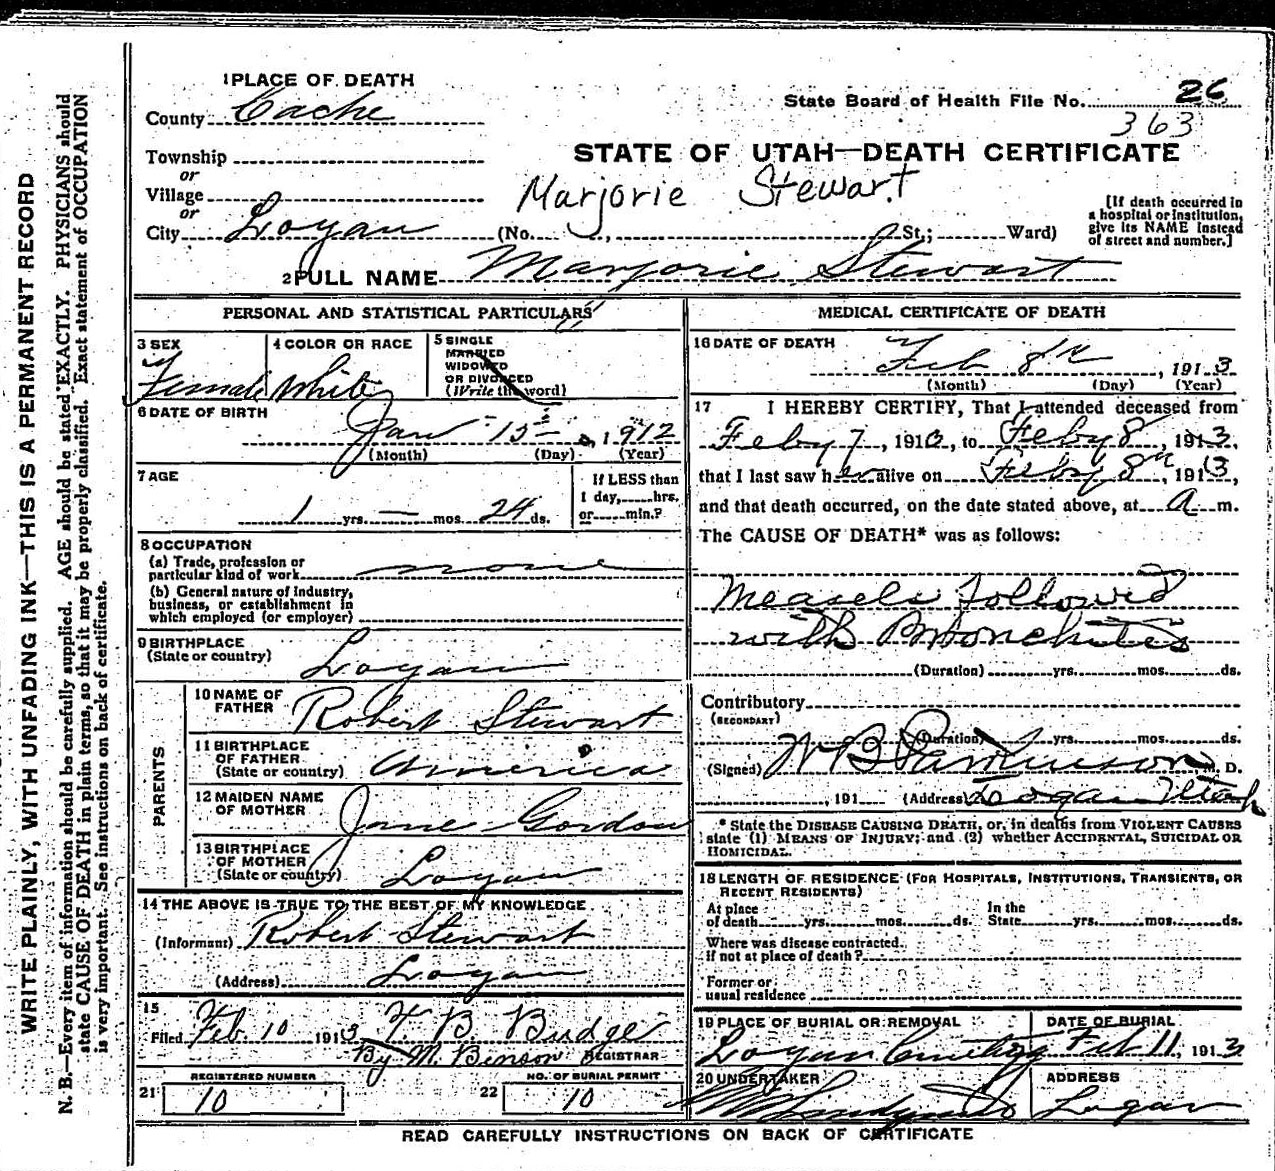 WRITE PLAINLY, WITH UNFADING INK—THIS IS A PERMANENT RECORD
N. B.—Every item of information should be carefully supplied. AGE should be stated EXACTLY. PHYSICIANS should
state CAUSE OF DEATH in plain terms, so that it may be properly classified. Exact statement of OCCUPATION
is very important. See instructions on back of certificate.
1 PLACE OF DEATH
County Cache
State Board of Health File No. 26
363
Township
or
Village
or
City Logan
STATE OF UTAH—DEATH CERTIFICATE
Marjorie Stewart
(No. , St.; Ward)
[If death occurred in
a hospital or institution,
give its NAME instead
of street and number.]
2 FULL NAME Marjorie Stewart
PERSONAL AND STATISTICAL PARTICULARS
3 SEX
Female
4 COLOR OR RACE
White
5 SINGLE
MARRIED
WIDOWED
OR DIVORCED
(Write the word)
6 DATE OF BIRTH
Jan 15 , 1912
(Month) (Day) (Year)
7 AGE
1 yrs. — mos. 24 ds.
If LESS than
1 day, hrs.
or min.?
8 OCCUPATION
(a) Trade, profession or
particular kind of work none
(b) General nature of industry,
business, or establishment in
which employed (or employer)
9 BIRTHPLACE
(State or country) Logan
PARENTS
10 NAME OF
FATHER Robert Stewart
11 BIRTHPLACE
OF FATHER
(State or country) America
12 MAIDEN NAME
OF MOTHER Jane Gordon
13 BIRTHPLACE
OF MOTHER
(State or country) Logan
14 THE ABOVE IS TRUE TO THE BEST OF MY KNOWLEDGE
(Informant) Robert Stewart
(Address) Logan
15
Filed Feb. 10 1913 T B Budge
By M. Benson REGISTRAR
REGISTERED NUMBER
21 10
NO. OF BURIAL PERMIT
22 10
MEDICAL CERTIFICATE OF DEATH
16 DATE OF DEATH
Feb 8th , 1913
(Month) (Day) (Year)
17 I HEREBY CERTIFY, That I attended deceased from
Feby 7 , 1913, to Feby 8 , 1913,
that I last saw her alive on Feby 8th, 1913,
and that death occurred, on the date stated above, at A m.
The CAUSE OF DEATH* was as follows:
Measels followed
with Bronchites
(Duration) yrs. mos. ds.
Contributory
(SECONDARY)
(Duration) yrs. mos. ds.
(Signed) W B Parkinson M. D.
, 191 (Address) Logan Utah
* State the DISEASE CAUSING DEATH, or, in deaths from VIOLENT CAUSES
state (1) MEANS OF INJURY; and (2) whether ACCIDENTAL, SUICIDAL OR
HOMICIDAL.
18 LENGTH OF RESIDENCE (FOR HOSPITALS, INSTITUTIONS, TRANSIENTS, OR
RECENT RESIDENTS)
At place
of death yrs. mos. ds.
In the
State yrs. mos. ds.
Where was disease contracted,
if not at place of death?
Former or
usual residence
19 PLACE OF BURIAL OR REMOVAL
Logan Cemetery
DATE OF BURIAL
Feb 11, 1913
20 UNDERTAKER
ADDRESS
Logan
READ CAREFULLY INSTRUCTIONS ON BACK OF CERTIFICATE